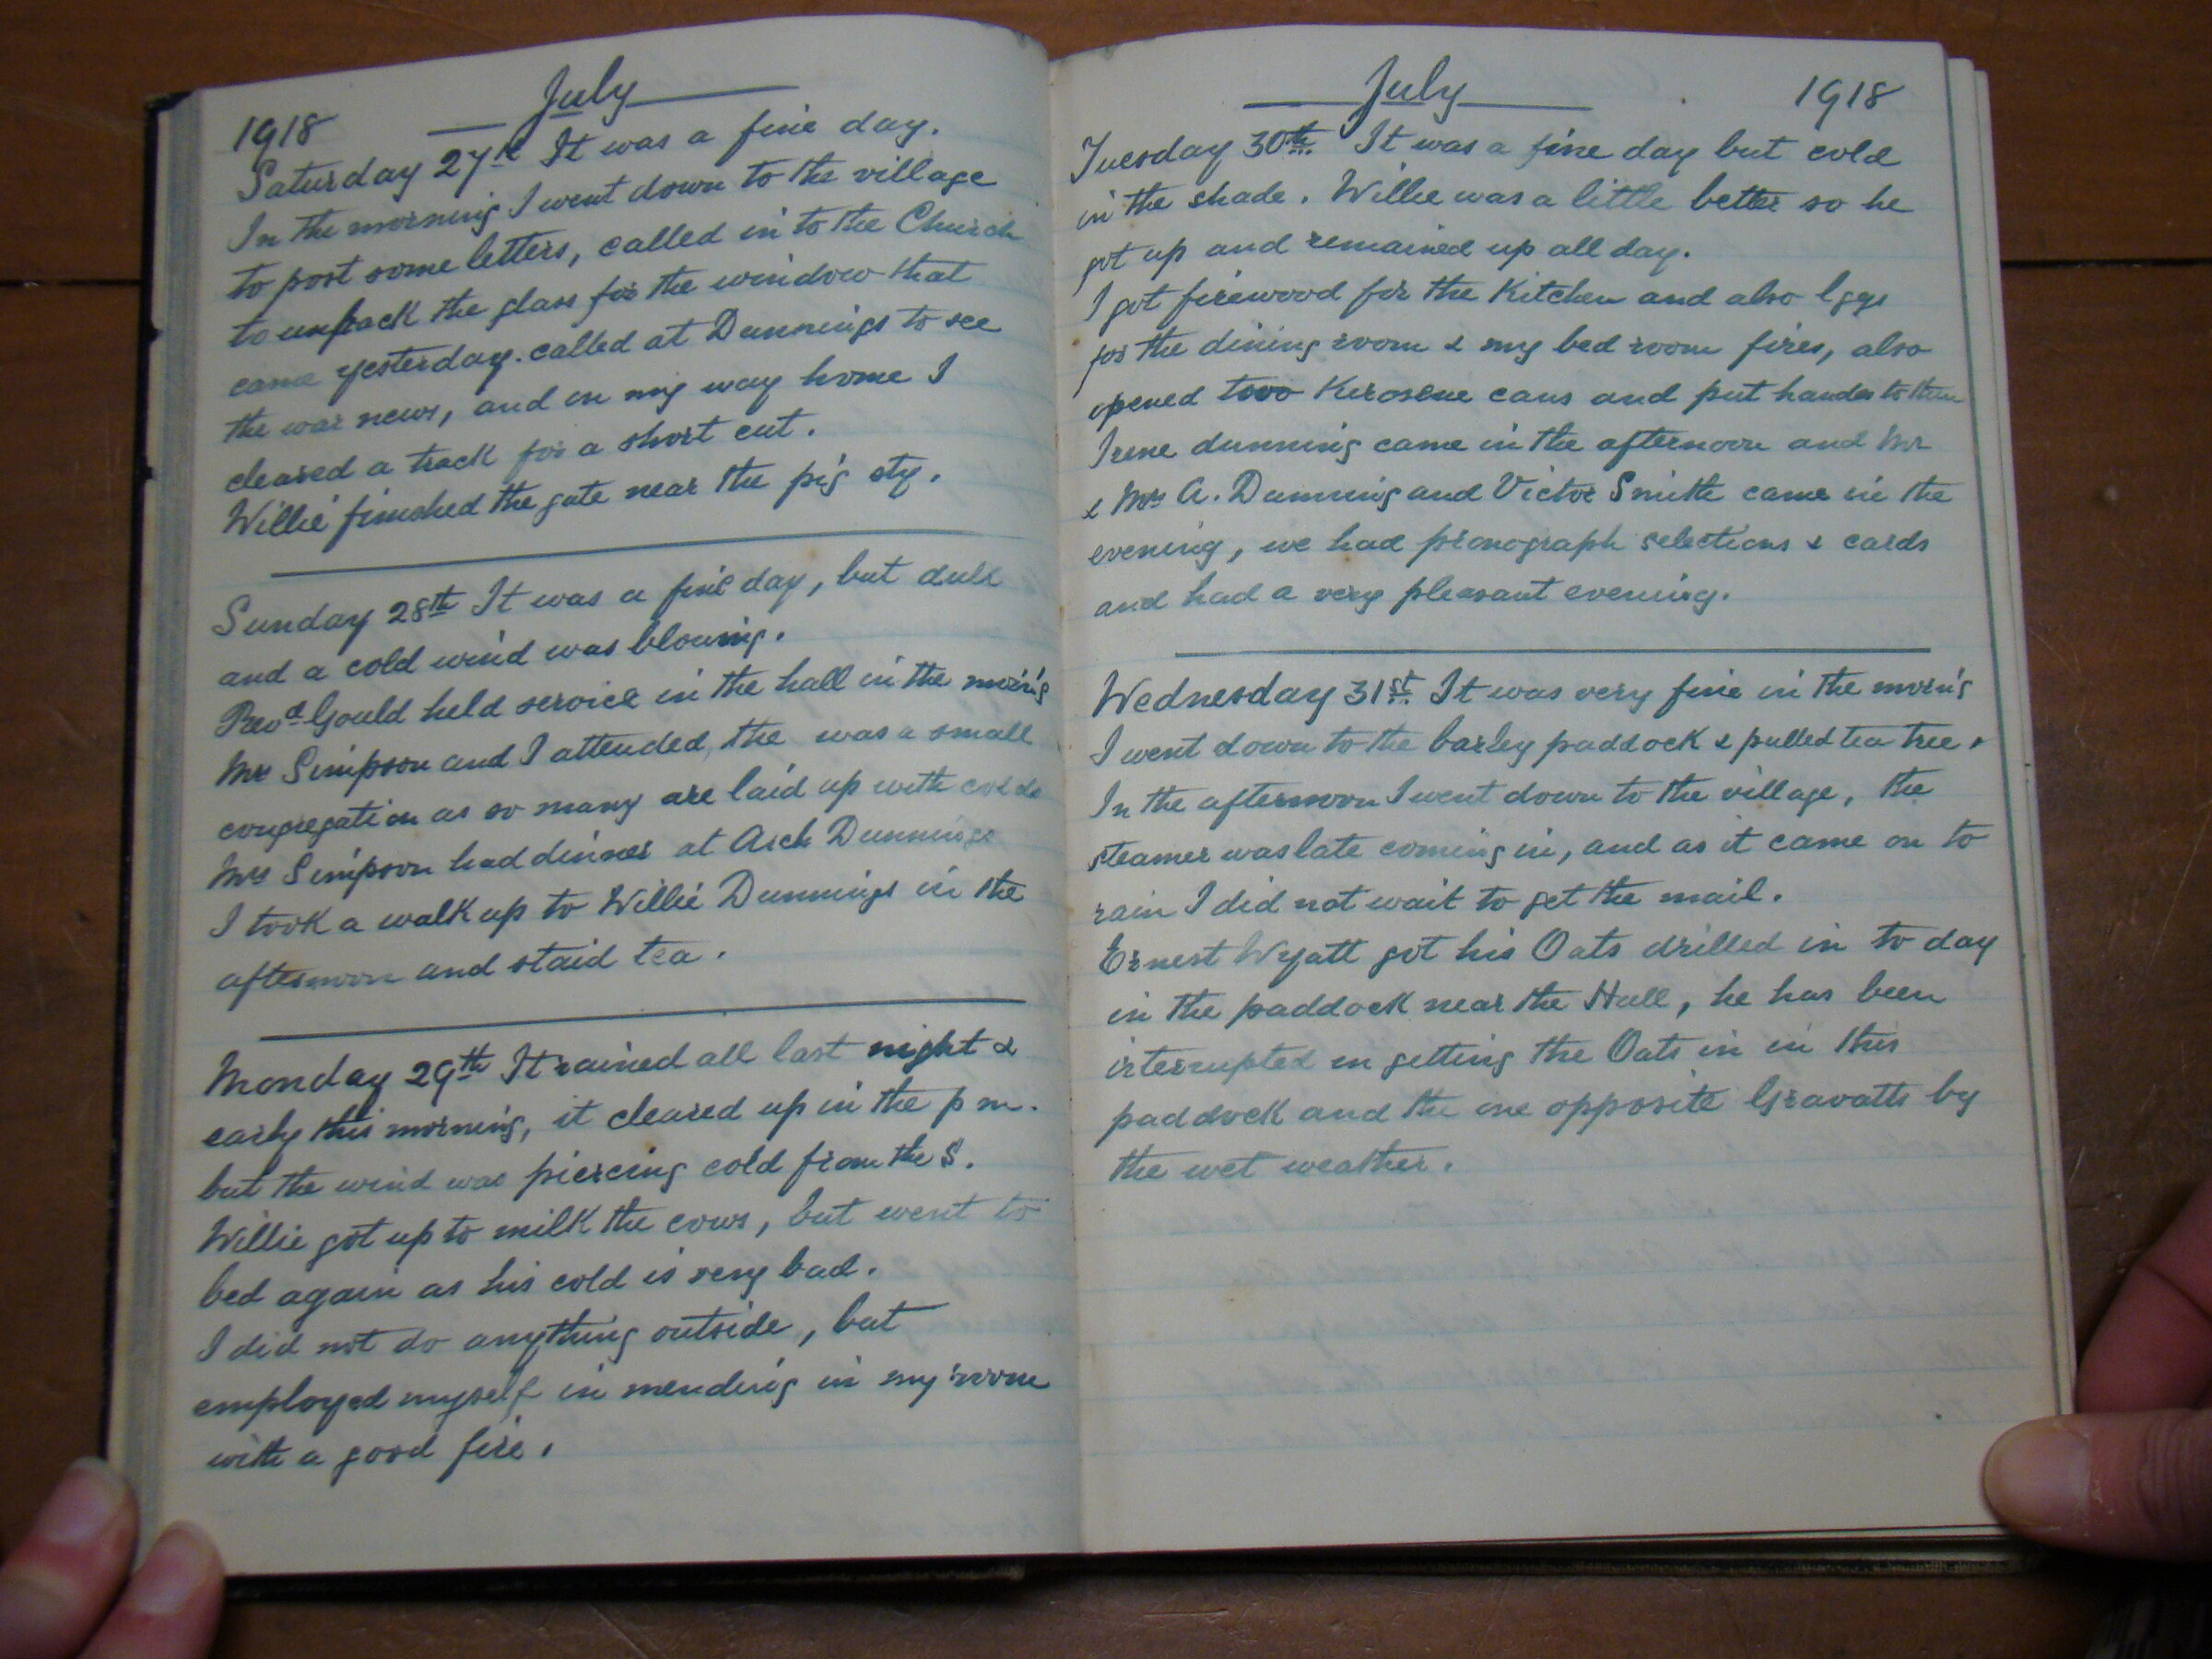 1918
July
Saturday 27th It was a fine day.
In the morning I went down to the village
to post some letters, called in to the Church
to unpack the glass for the window that
came yesterday. called at Dunnings to see
the war news, and on my way home I
cleared a track for a short cut.
Willie finished the gate near the pig sty.
Sunday 28th It was a fine day, but dull
and a cold wind was blowing.
Revd Gould held service in the hall in the morning
Mr Simpson and I attended, the was a small
congregation as so many are laid up with colds
Mrs Simpson had dinner at Arch Dunnings
I took a walk up to Willie Dunnings in the
afternoon and staid tea.
Monday 29th It rained all last night &
early this morning, it cleared up in the pm.
but the wind was piercing cold from the S.
Willie got up to milk the cows, but went to
bed again as his cold is very bad.
I did not do anything outside, but
employed myself in mending in my room
with a good fire.
July
1918
Tuesday 30th It was a fine day but cold
in the shade. Willie was a little better so he
got up and remained up all day.
I got firewood for the Kitchen and also logs
for the dining room & my bed room fires, also
opened two Kerosene cans and put handes to them
Irene dunning came in the afternoon and Mr
& Mrs A. Dunning and Victor Smith came in the
evening, we had pronograph selections & cards
and had a very pleasant evening.
Wednesday 31st It was very fine in the morn'g
I went down to the barley paddock & pulled tea tree.
In the afternoon I went down to the village, the
steamer was late coming in, and as it came on to
rain I did not wait to get the mail.
Ernest Wyatt got his Oats drilled in to day
in the paddock near the Hall, he has been
interrupted in getting the Oats in in this
paddock and the one opposite Gravatts by
the wet weather.